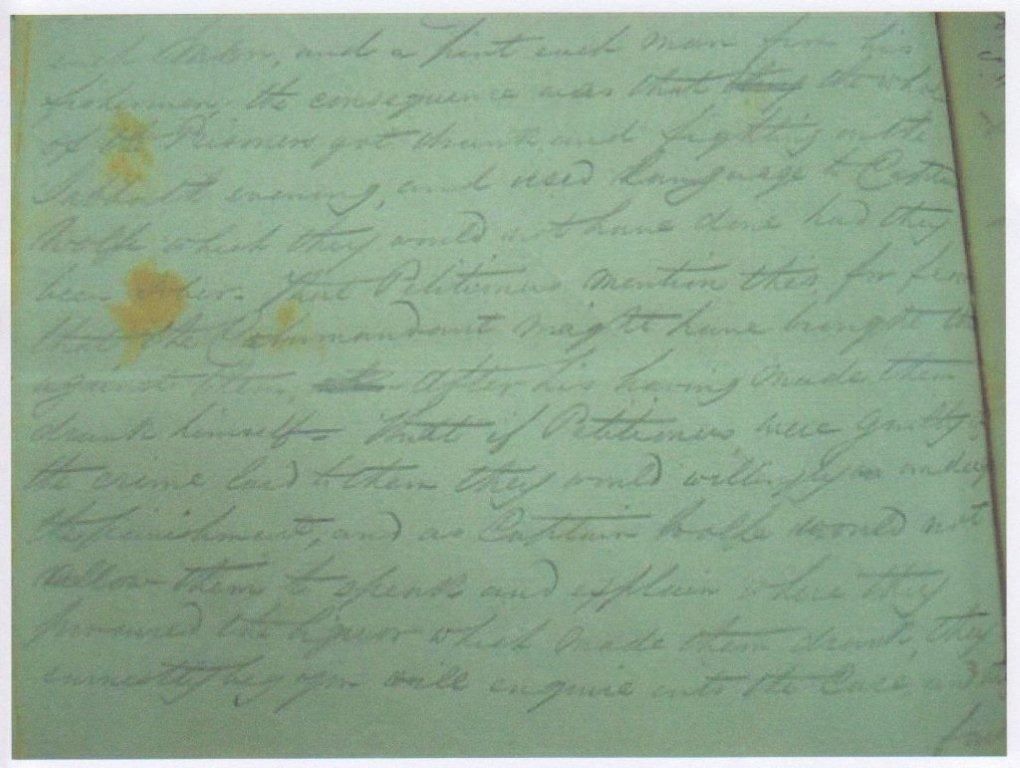 each        , and a pint each man from his
fishermen, the consequence was that they the whole
of the Prisoners got drunk and fighting on the
Sabbath evening, and used language to Captn
Wolfe which they would not have done had they
been sober. That Petitioners mention this for fear
that the Commandant might have brought it
against them, after his having made them
drunk himself. That if Petitioners were guilty of
the crime laid to them they would willingly undergo
the punishment, and as Captain Wolfe would not
allow them to speak and explain where they
procured the liquor which made them drunk, they
earnestly beg you will enquire into the Case and